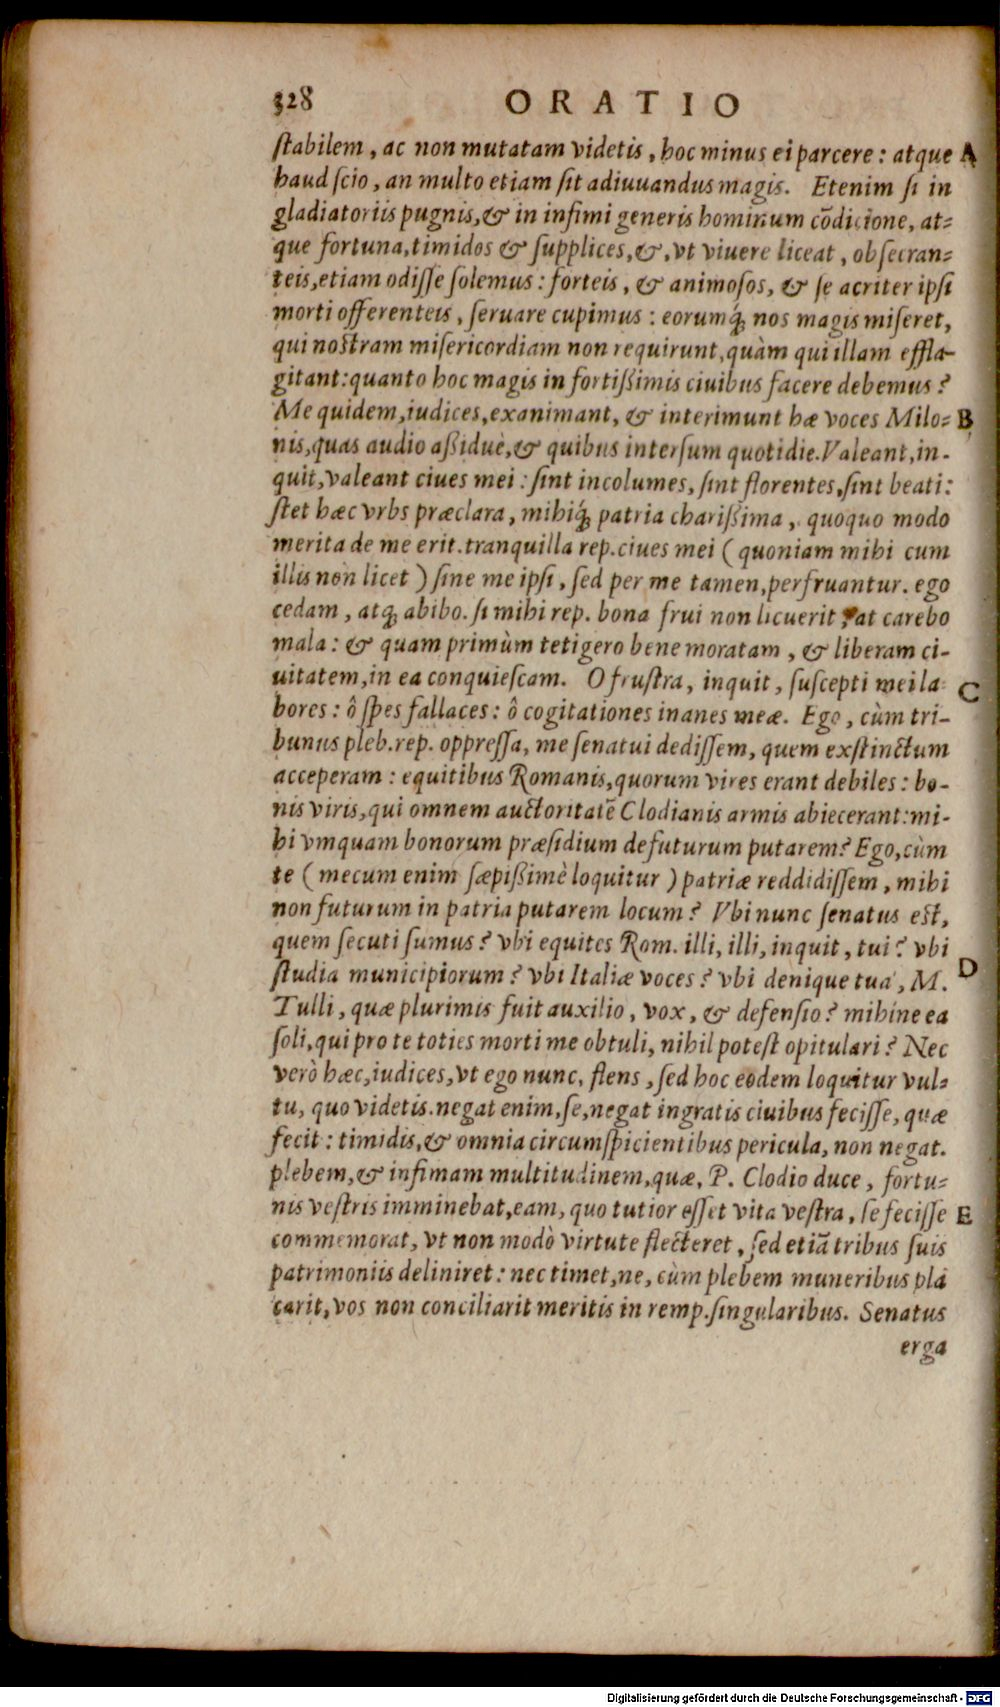 328 ORATIO
ſtabilem, ac non mutatam videtis, hoc minus ei parcere: atque A
haud ſcio, an multo etiam ſit adiuuandus magis. Etenim ſi in
gladiatoriis pugnis, & in infimi generis hominum cōdicione, at-
que fortuna, timidos & ſupplices, &, vt viuere liceat, obſecran-
teis, etiam odiſſe ſolemus: forteis, & animoſos, & ſe acriter ipſi
morti offerenteis, ſeruare cupimus: eorumq́; nos magis miſeret,
qui noſtram miſericordiam non requirunt, quàm qui illam effla-
gitant: quanto hoc magis in fortißimis ciuibus facere debemus?
Me quidem, iudices, exanimant, & interimunt hæ voces Milo- B
nis, quas audio aßiduè, & quibus interſum quotidie. Valeant, in-
quit, valeant ciues mei: ſint incolumes, ſint florentes, ſint beati:
ſtet hæc vrbs præclara, mihiq́; patria charißima, quoquo modo
merita de me erit. tranquilla rep. ciues mei (quoniam mihi cum
illis non licet) ſine me ipſi, ſed per me tamen, perfruantur. ego
cedam, atq; abibo. ſi mihi rep. bona frui non licuerit, at carebo
mala: & quam primùm tetigero bene moratam, & liberam ci-
uitatem, in ea conquieſcam. O fruſtra, inquit, ſuſcepti mei la- C
bores: ô ſpes fallaces: ô cogitationes inanes meæ. Ego, cùm tri-
bunus pleb. rep. oppreſſa, me ſenatui dediſſem, quem exſtinctum
acceperam: equitibus Romanis, quorum vires erant debiles: bo-
nis viris, qui omnem auctoritatē Clodianis armis abiecerant: mi-
hi vmquam bonorum præſidium defuturum putarem? Ego, cùm
te (mecum enim ſæpißimè loquitur) patriæ reddidiſſem, mihi
non futurum in patria putarem locum? Vbi nunc ſenatus eſt,
quem ſecuti ſumus? vbi equites Rom. illi, illi, inquit, tui? vbi
ſtudia municipiorum? vbi Italiæ voces? vbi denique tua, M. D
Tulli, quæ plurimis fuit auxilio, vox, & defenſio? mihíne ea
ſoli, qui pro te toties morti me obtuli, nihil poteſt opitulari? Nec
verò hæc, iudices, vt ego nunc, flens, ſed hoc eodem loquitur vul-
tu, quo videtis. negat enim, ſe, negat ingratis ciuibus feciſſe, quæ
fecit: timidis, & omnia circumſpicientibus pericula, non negat.
plebem, & infimam multitudinem, quæ, P. Clodio duce, fortu-
nis veſtris imminebat, eam, quo tutior eſſet vita veſtra, ſe feciſſe E
commemorat, vt non modò virtute flecteret, ſed etiā tribus ſuis
patrimoniis deliniret: nec timet, ne, cùm plebem muneribus pla
carit, vos non conciliarit meritis in remp. ſingularibus. Senatus
erga
Digitalisierung gefördert durch die Deutsche Forschungsgemeinschaft - DFG